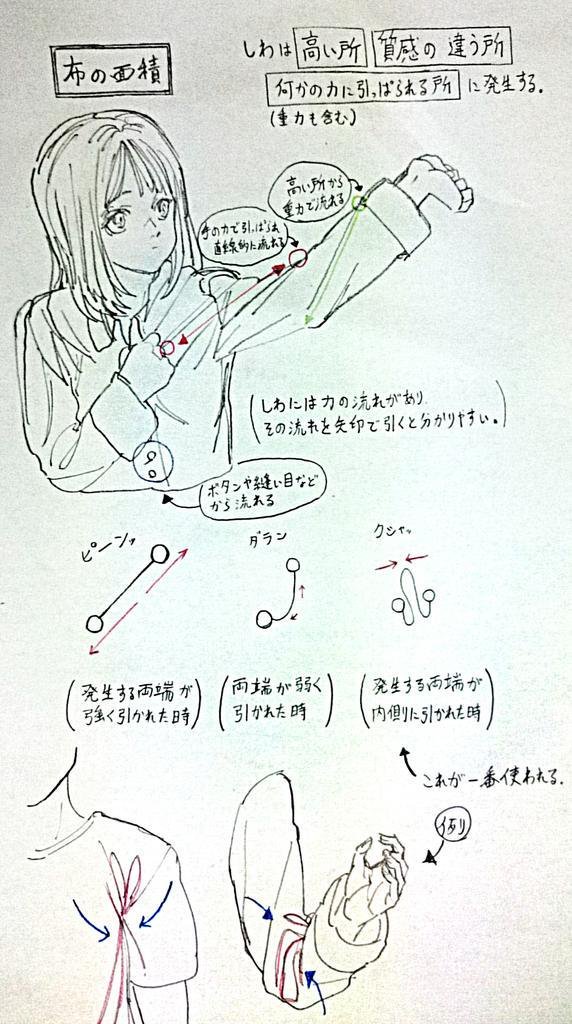 布の面積
しわは 高い所 質感の 違う所
何かの力に引っぱられる所 に発生する。
(重力も含む)
高い所から
重力で流れる
手の力で引っぱられ
直線的に流れる
(しわには力の流れがあり、
その流れを矢印で引くと分かりやすい。)
ボタンや縫い目など
から流れる
ピーンッ
ダラン
クシャッ
(発生する両端が
強く引かれた時)
(両端が弱く
引かれた時)
(発生する両端が
内側に引かれた時)
これが一番使われる。
例